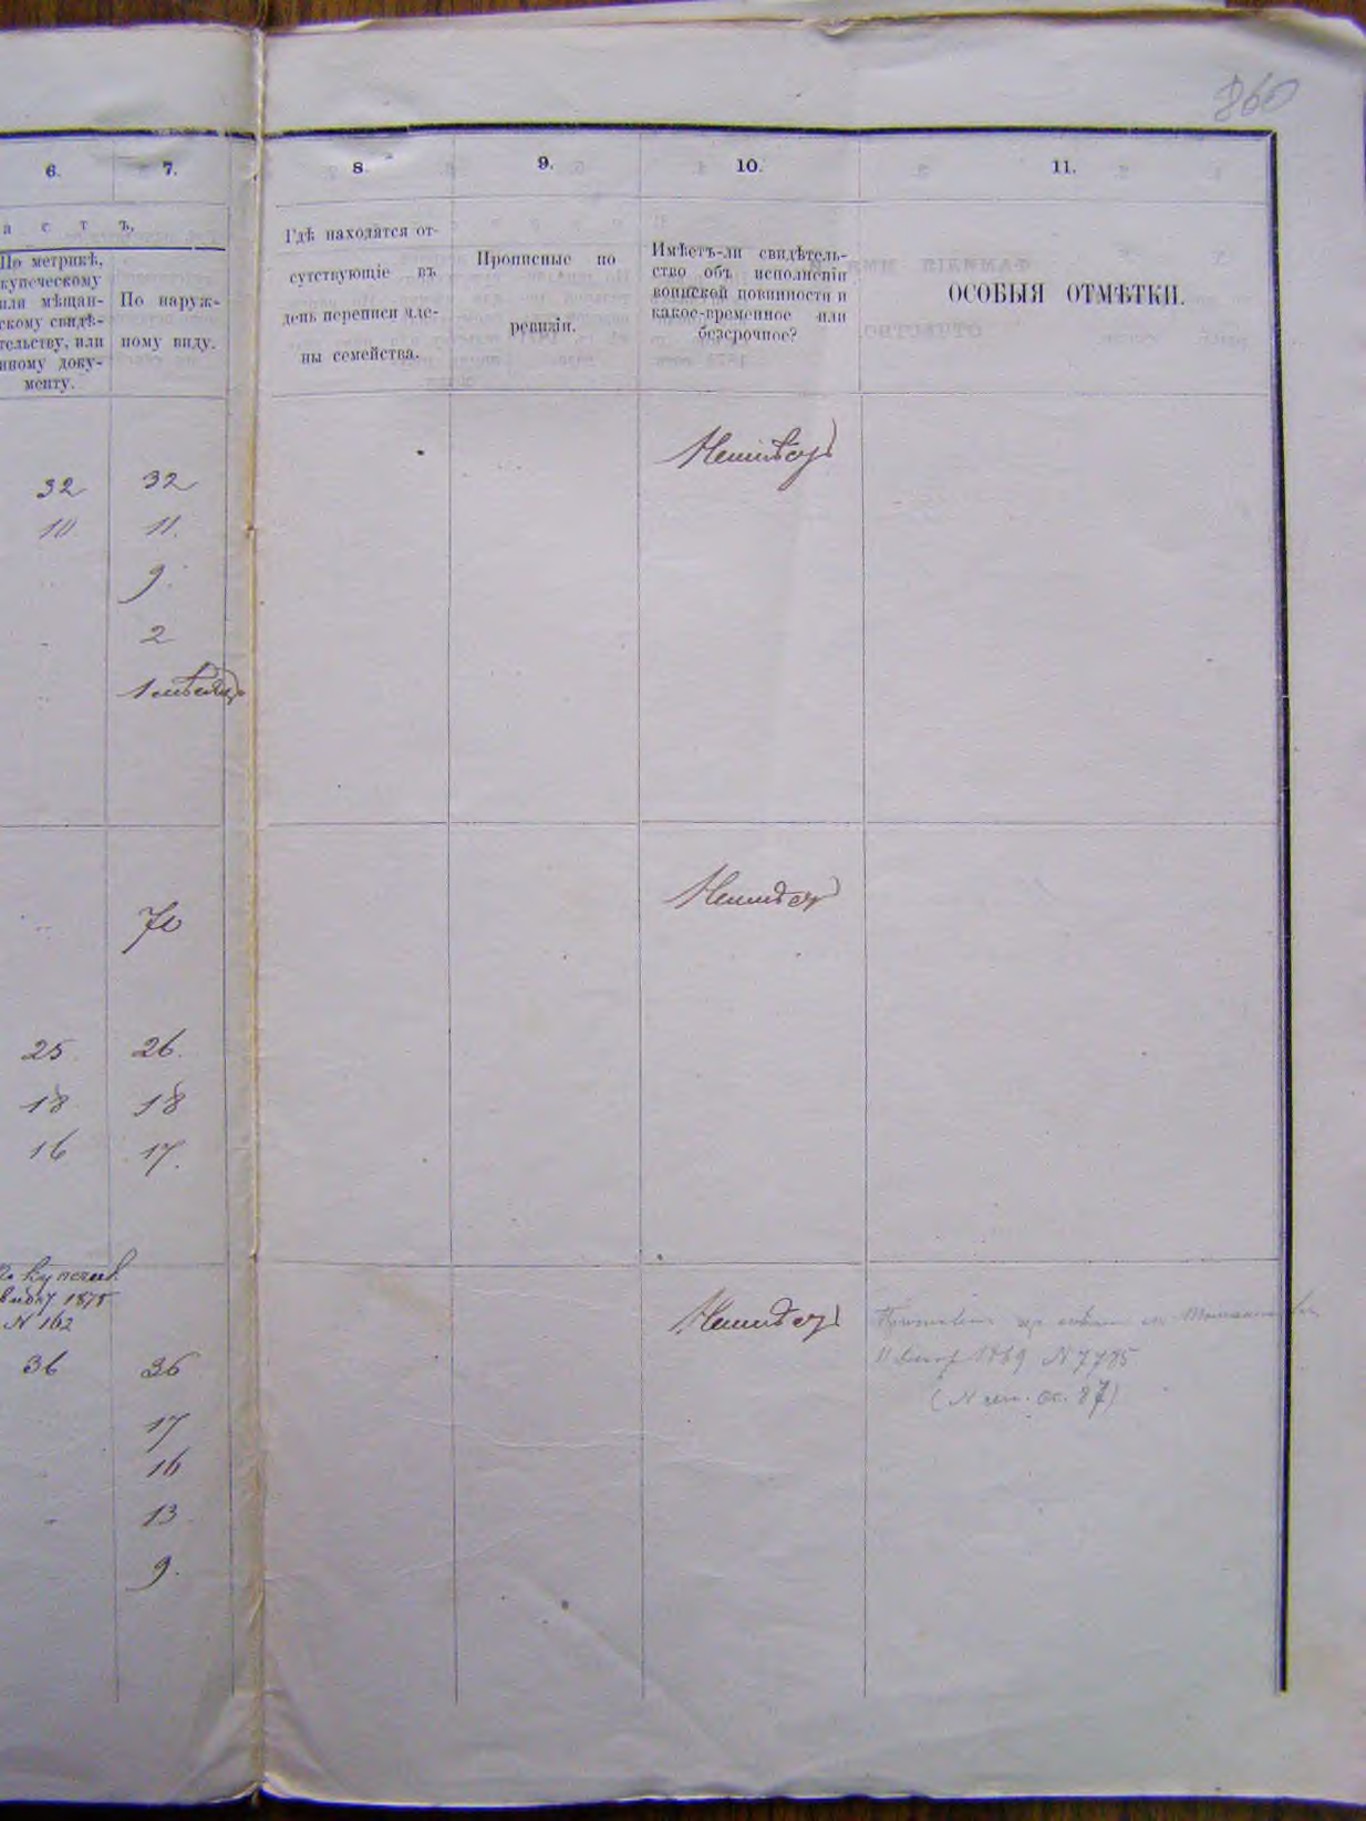 860
6. 7. 8. 9. 10. 11.
а с т ъ,
По метрикѣ,
купеческому
или мѣщан-
скому свидѣ-
тельству, или
иному доку-
менту.
По наруж-
ному виду.
Гдѣ находятся от-
сутствующіе въ
день переписи чле-
ны семейства.
Прописные по
ревизіи.
Имѣетъ-ли свидѣтель-
ство объ исполненіи
воинской повинности и
какое-временное или
безсрочное?
ОСОБЫЯ ОТМѢТКИ.
Неимѣетъ
32 32
10 11.
9.
2
1 мѣсяцъ
Неимѣетъ
70
25 26.
18 18
16 17.
По купеч.
виду 1875
N 162
Неимѣетъ
11 1869 N 7785
36 36
17
16
13
9.